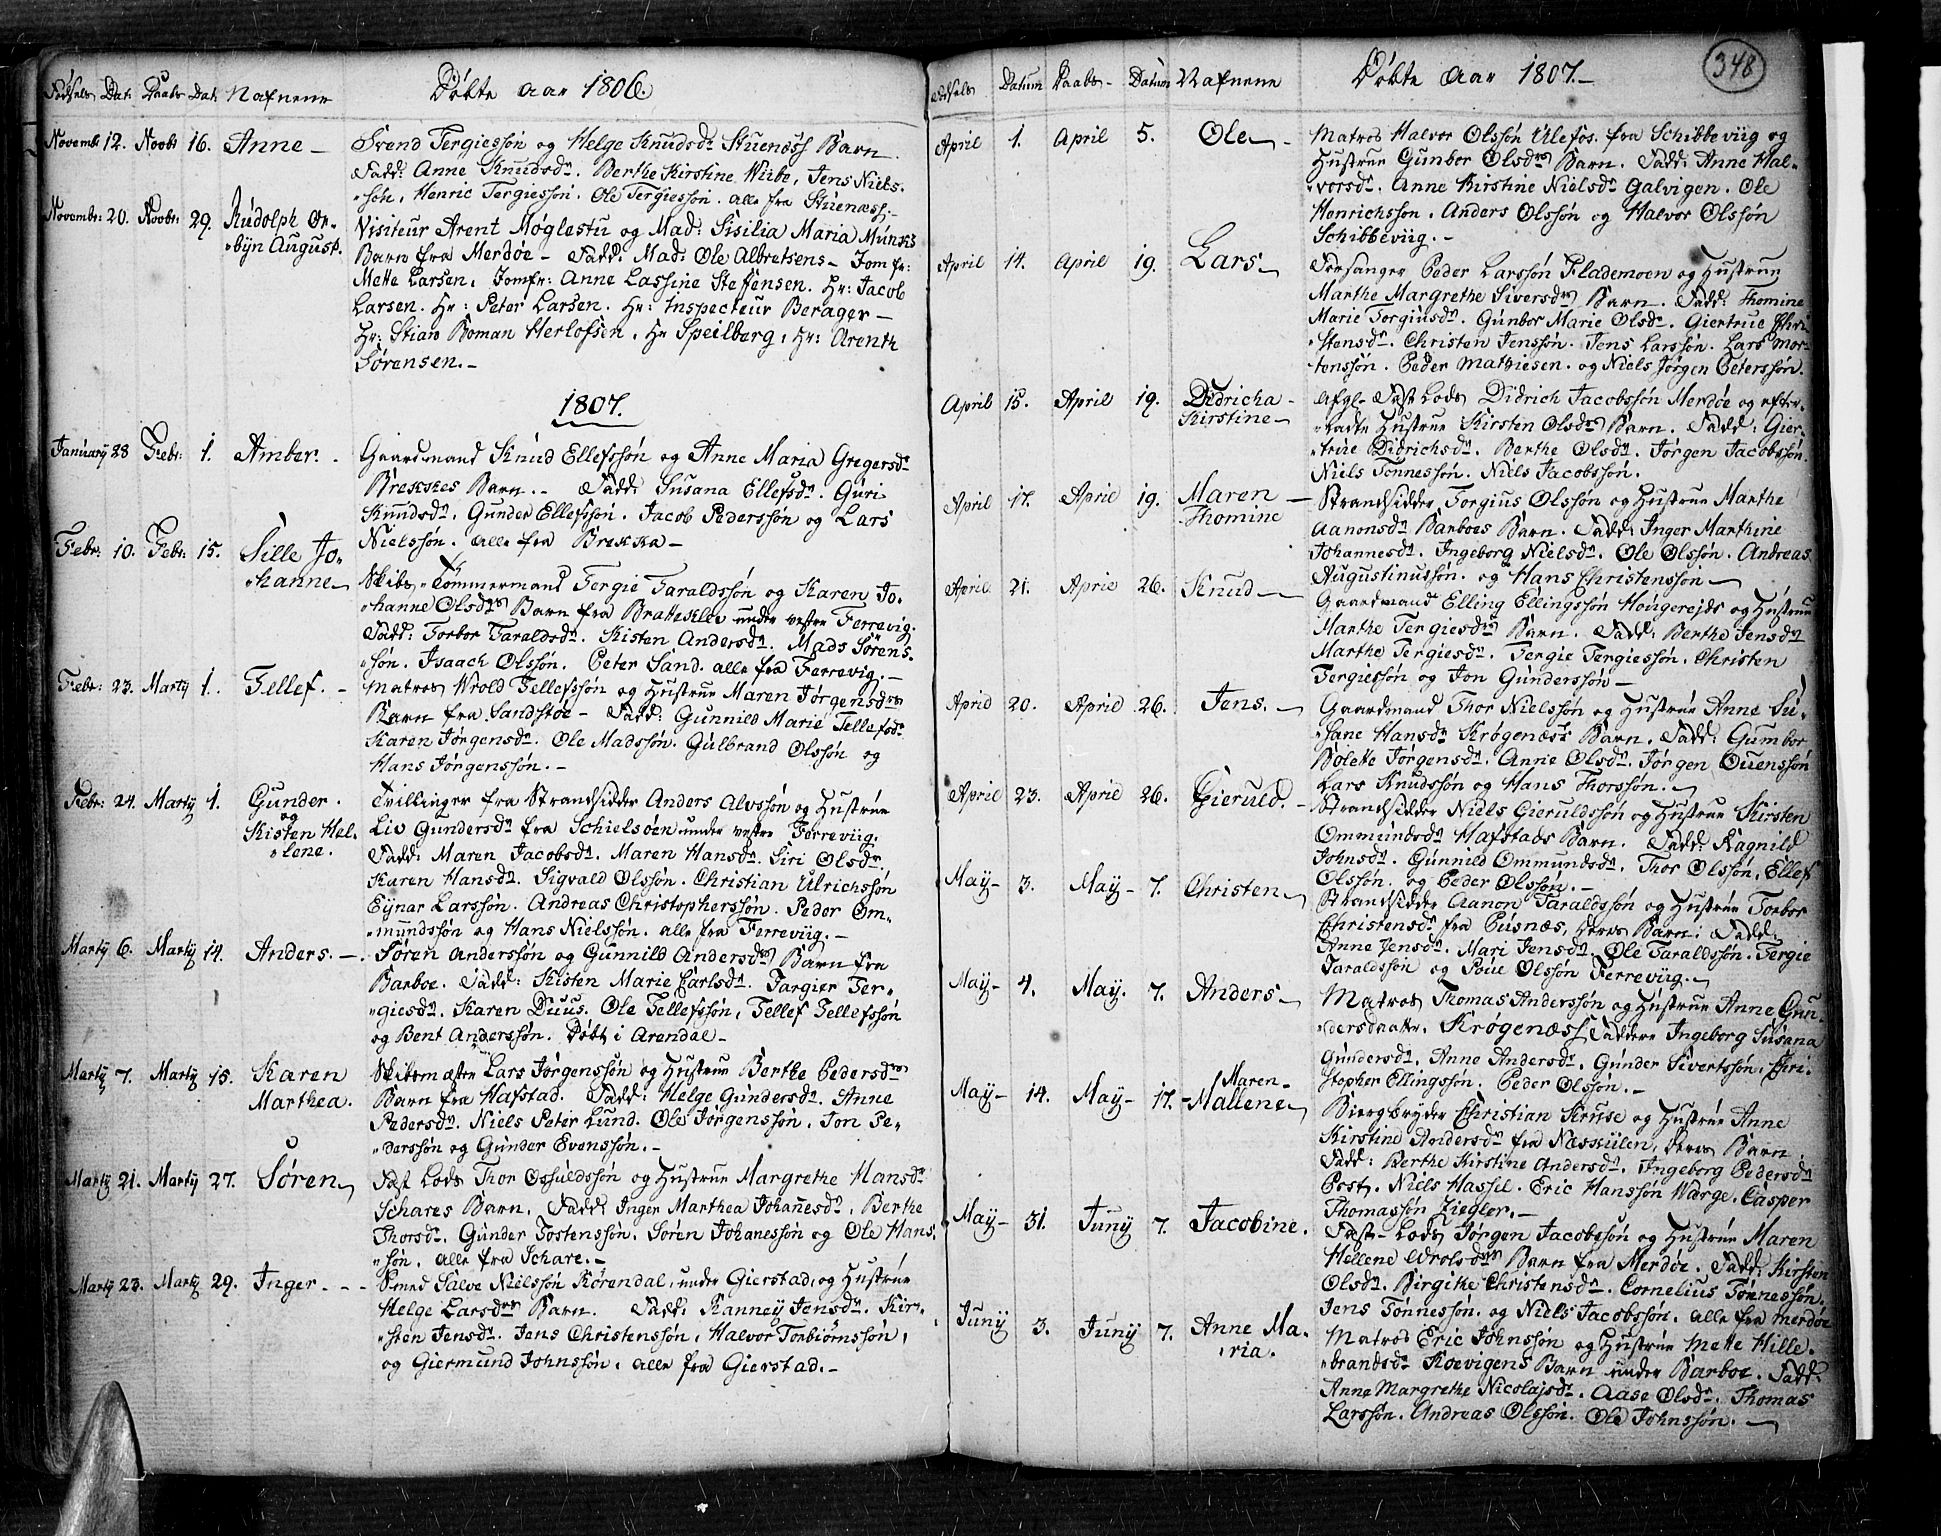 Fødsels Dat: Daabs Dat: Nafnene Døbte aar 1806.
Novembr 12. Novbr 16. Anne – Svend Tergiessøn og Helge Knudsdr Stuenæss Barn
Fadd: Anne Knudsdr. Berthe Kirstine Wiibe, Jens Niels-
søn, Henric Tergiessøn. Ole Tergiessøn. alle fra Stuenæss.–
Novembr: 20. Novbr: 29. Rudolph Or-
byn August. Visiteur Arent Møglestu og Mad: Sisilia Maria Munchs
Barn fra Merdøe – Fadd: Mad: Ole Albretsens – Jomfr:
Mette Larsen, Jomfr: Anne Lassine Steffensen. Hr: Jacob
Larsen. Hr: Peter Larsen. Hr: Inspecteur Berager –
Hr: Stian Boman Herlofsen, Hr Speilberg, Hr: Arenth
Sørensen.–
1807.
January 28 Febr: 1. Amber. Gaardmand Knud Ellefssøn og Anne Maria Gregersdr
Brekkes Barn.– Fadd: Susana Ellefsdr. Guri
Knudsdr. Gunder Ellefssøn. Jacob Pederssøn og Lars
Nielssøn. alle fra Brekka –
Febr: 10. Febr: 15. Sille Jo-
hanne – Skibs-Tømmermand Tergie Taraldssøn og Karen Jo-
hanne Olsdrs Barn fra Bratteklev under vestre Ferrevig.
Fadd: Torbor Taraldsdr. Kisten Andersdr. Mads Sørens-
søn. Isaach Olssøn. Peter Sand. alle fra Ferrevig.–
Febr: 23. Marty 1. Tellef. – Matros Wrold Tellefssøn og Hustrue Maren Jørgensdrs
Barn fra Sandstøe – Fadd: Gunnild Marie Tellefsdr
Karen Jørgensdr. Ole Madssøn. Gulbrand Olssøn og
Hans Jørgenssøn.–
Febr: 24. Marty 1. Gunder.
og
Kisten Hel-
lene. Tvillinger fra Strandsidder Anders Alvssøn og Hustrue
Liv Gundersdr fra Schielsøen under vestre Ferreviig.
Fadd: Maren Jacobsdr. Maren Hansdr. Siri Olsdr.
Karen Hansdr. Sigvald Olssøn. Christian Ulrichssøn
Eynar Larssøn. Andreas Christopherssøn. Peder Om-
mundssøn og Hans Nielssøn. alle fra Ferreviig.–
Marty 6. Marty 14. Anders. – Søren Anderssøn og Gunnild Andersdrs Barn fra
Barboe. Fadd: Kisten Marie Carlsdr. Targier Ter-
giesdr. Karen Duus. Ole Tellefssøn, Tellef Tellefssøn
og Bent Anderssøn. Døbt i Arendal –
Marty 7. Marty 15. Karen
Marthea. Skibsmæster Lars Jørgenssøn og Hustrue Berthe Pedersdrs
Barn fra Hafstad. Fadd: Helge Gundersdr. Anne
Pedersdr. Niels Peter Lund. Ole Jørgenssøn. Jon Pe-
derssøn og Gunder Evenssøn.–
Marty 21. Marty 27. Søren – Fast Lods Thor Osfuldssøn og Hustrue Margrethe Hansdr
Schares Barn. Fadd: Inger Marthea Johanesdr, Berthe
Thorsdr. Gunder Tostenssøn. Søren Johanessøn og Ole Hans-
søn. alle fra Schare.–
Marty 23. Marty 29. Inger. – – Smed Salve Nielssøn Rørendal, under Gierstad, og Hustrue
Helge Larsdrs Barn. Fadd: Ranney Jensdr. Kir-
sten Jensdr. Jens Christenssøn, Halvor Torbiørnssøn,
og Giermund Johnssøn. alle fra Gierstad.–
348
Fødsels Datum Daabs – Datum Nafnene Døbte aar 1807.–
April 1. April 5. Ole – Matros Halvor Olssøn Ulefos. fra Schibbeviig og
Hustrue Gunbor Olsdrs Barn. Fadd: Anne Hal-
vorsdr. Anne Kirstine Nielsdr Galvigen. Ole
Henrichssøn. Anders Olssøn og Halvor Olssøn
Schibbeviig.–
April 14. April 19. Lars – Forsanger Peder Larssøn Flademoen og Hustrue
Marthe Margrethe Siversdrs Barn. Fadd: Thomine
Marie Torgiusdr. Gunbor Marie Olsdr. Giertrue Chri-
stensdr. Christen Jenssøn. Jens Larssøn. Lars Mor-
tenssøn. Peder Mathiesen. og Niels Jørgen Peterssøn.
April 15. April 19. Didricha –
Kirstine – Afgl. Fast Lods Didrich Jacobssøn Merdøe og efter-
ladte Hustrue Kirsten Olsdrs Barn. Fadd: Gier-
true Didrichsdr. Berthe Olsdr. Jørgen Jacobssøn.
Niels Tønnessøn. Niels Jacobssøn.
April 17. April 19. Maren –
Thomine Strandsidder Torgius Olssøn og Hustrue Marthe
Aanonsdr Barboes Barn. Fadd: Inger Marthine
Johannesdr. Ingeborg Nielsdr. Ole Olssøn. Andreas
Augustinussøn. og Hans Christenssøn –
April 21. April 26. Knud – Gaardmand Elling Ellingssøn Hougerejds og Hustrue
Marthe Tergiesdrs Barn. Fadd: Berthe Jensdr
Marthe Tergiesdr. Tergie Tergiessøn. Christen
Tergiessøn og Jon Gunderssøn –
April 20. April 26. Jens. – Gaardmand Thor Nielssøn og Hustrue Anne Su-
sane Hansdr Krøgenæss Barn. Fadd: Gumbor
Bolette Jørgensdr. Anne Olsdr. Jørgen Ouenssøn
Lars Knudssøn og Hans Thorssøn.–
April 23. April 26. Gieruld. – Strandsidder Niels Gieruldssøn og Hustrue Kirsten
Ommundsdr Hafstads Barn. Fadd: Ragnild
Johnsdr. Gunnild Ommundsdr. Thor Olssøn, Ellef
Olssøn. og Peder Olssøn.–
May – 3. May – 7. Christen – Strandsidder Aanon Taraldssøn og Hustrue Torbor
Christensdr fra Pusnæs, deres Barn. Fadd:
Anne Jensdr. Mari Jensdr. Ole Taraldssøn. Tergie
Taraldssøn og Poue Olssøn Ferreviig.–
May – 4. May. 7. Anders – Matros Thomas Anderssøn og Hustrue Anne Gun-
dersdaatter. Krøgenæss Faddere Ingeborg Susana
Gundersdr. Anne Andersdr. Gunder Sivertssøn, Chri-
stopher Ellingssøn. Peder Olssøn.–
May – 14. May – 17. Maren –
Mallene – Biergbryder Christian Kruse og Hustrue Anne
Kirstine Andersdr fra Næskiilen, deres Barn
Fadd: Berthe Kirstine Andersdr. Ingeborg Pedersdr
Post. Niels Hassil. Eric Hanssøn Warge. Casper
Thomassøn Ziegler.–
May – 31. Juny 7. Jacobine. Fast-Lods Jørgen Jacobssøn og Hustrue Maren
Hellene Wrolsdrs Barn fra Merdøe. Fadd: Kirsten
Olsdr. Birgitte Christensdr. Cornelius Tønnessøn.
Jens Tønnessøn. og Niels Jacobssøn. alle fra Merdøe
Juny 3. Juny 7. Anne Ma-
ria. Matros Eric Johnssøn og Hustrue Mette Hille-
brandsdr Koevigens Barn under Barboe. Fadd:
Anne Margrethe Nicolajsdr. Aase Olsdr. Thomas
Larssøn. Andreas Olssøn. Ole Johnssøn.–